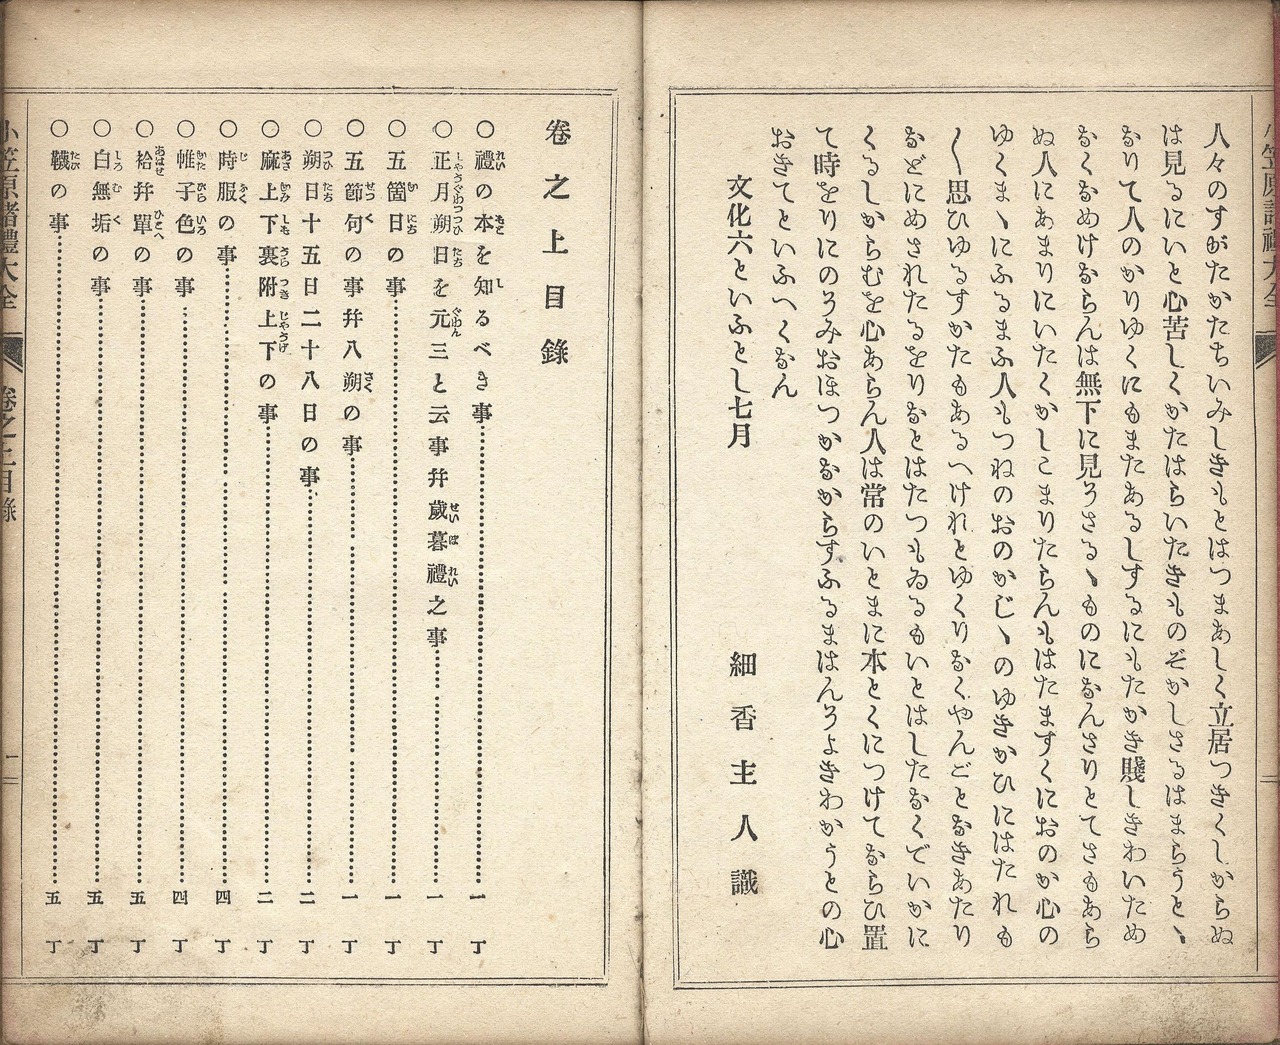 人々のすがたかたちいみしきもとはつまあしく立居つきくしからぬ
は見るにいと心苦しくかたはらいたきものぞかしさるはまらうとゝ
なりて人のかりゆくにもまたあるしするにもたかき賤しきわいため
なくなめけならんは無下に見うさるゝものになんさりとてさもあら
ぬ人にあまりにいたくかしこまりたらんもはたますくにおのか心の
ゆくまゝにふるまふ人もつねのおのかじゝのゆきかひにはたれも
〱思ひゆるすかたもあるへけれとゆくりなくやんごとなきあたり
などにめされたるをりなとはたつもゐるもいとはしたなくていかに
くるしからむを心あらん人は常のいとまに本とくにつけてならひ置
て時をりにのうみおほつかなからすふるまはんうよきわかうとの心
おきてといふへくなん
文化六といふとし七月
細香主人識
小笠原諸禮大全
卷之上目錄
○禮の本を知るべき事 一丁
○正月朔日を元三と云事幷歲暮禮之事 一丁
○五箇日の事 一丁
○五節句の事幷八朔の事 一丁
○朔日十五日二十八日の事 二丁
○麻上下裏附上下の事 二丁
○時服の事 四丁
○帷子色の事 四丁
○袷幷單の事 五丁
○白無垢の事 五丁
○韈の事 五丁
小笠原諸禮大全 卷之上目錄 一